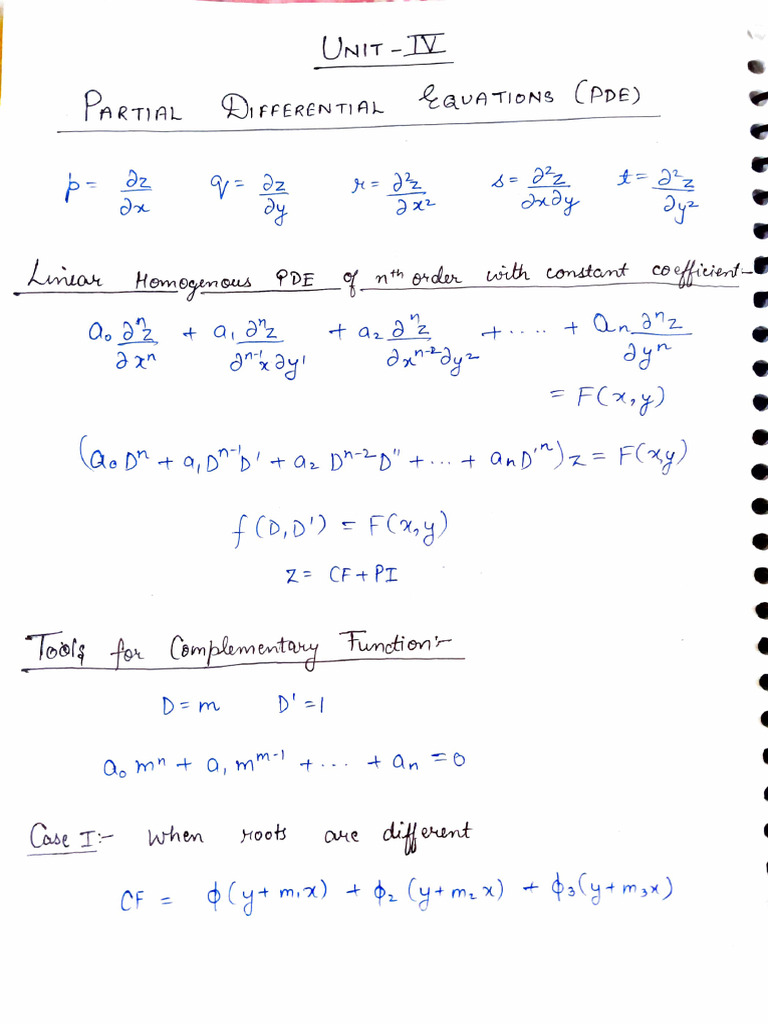 UNIT - IV
PARTIAL DIFFERENTIAL EQUATIONS (PDE)
p = ∂z/∂x q = ∂z/∂y r = ∂²z/∂x² s = ∂²z/∂x∂y t = ∂²z/∂y²
Linear Homogenous PDE of nth order with constant coefficient:-
a₀ ∂ⁿz/∂xⁿ + a₁ ∂ⁿz/∂ⁿ⁻¹x ∂y¹ + a₂ ∂ⁿz/∂xⁿ⁻²∂y² + ..... + aₙ ∂ⁿz/∂yⁿ
= F(x,y)
(a₀Dⁿ + a₁Dⁿ⁻¹D' + a₂Dⁿ⁻²D'' + ... + aₙD'ⁿ)z = F(x,y)
f(D,D') = F(x,y)
z = CF + PI
Tools for Complementary Function:-
D = m D' = 1
a₀mⁿ + a₁mᵐ⁻¹ + ... + aₙ = 0
Case I:- When roots are different
CF = ϕ(y+m₁x) + ϕ₂(y+m₂x) + ϕ₃(y+m₃x)